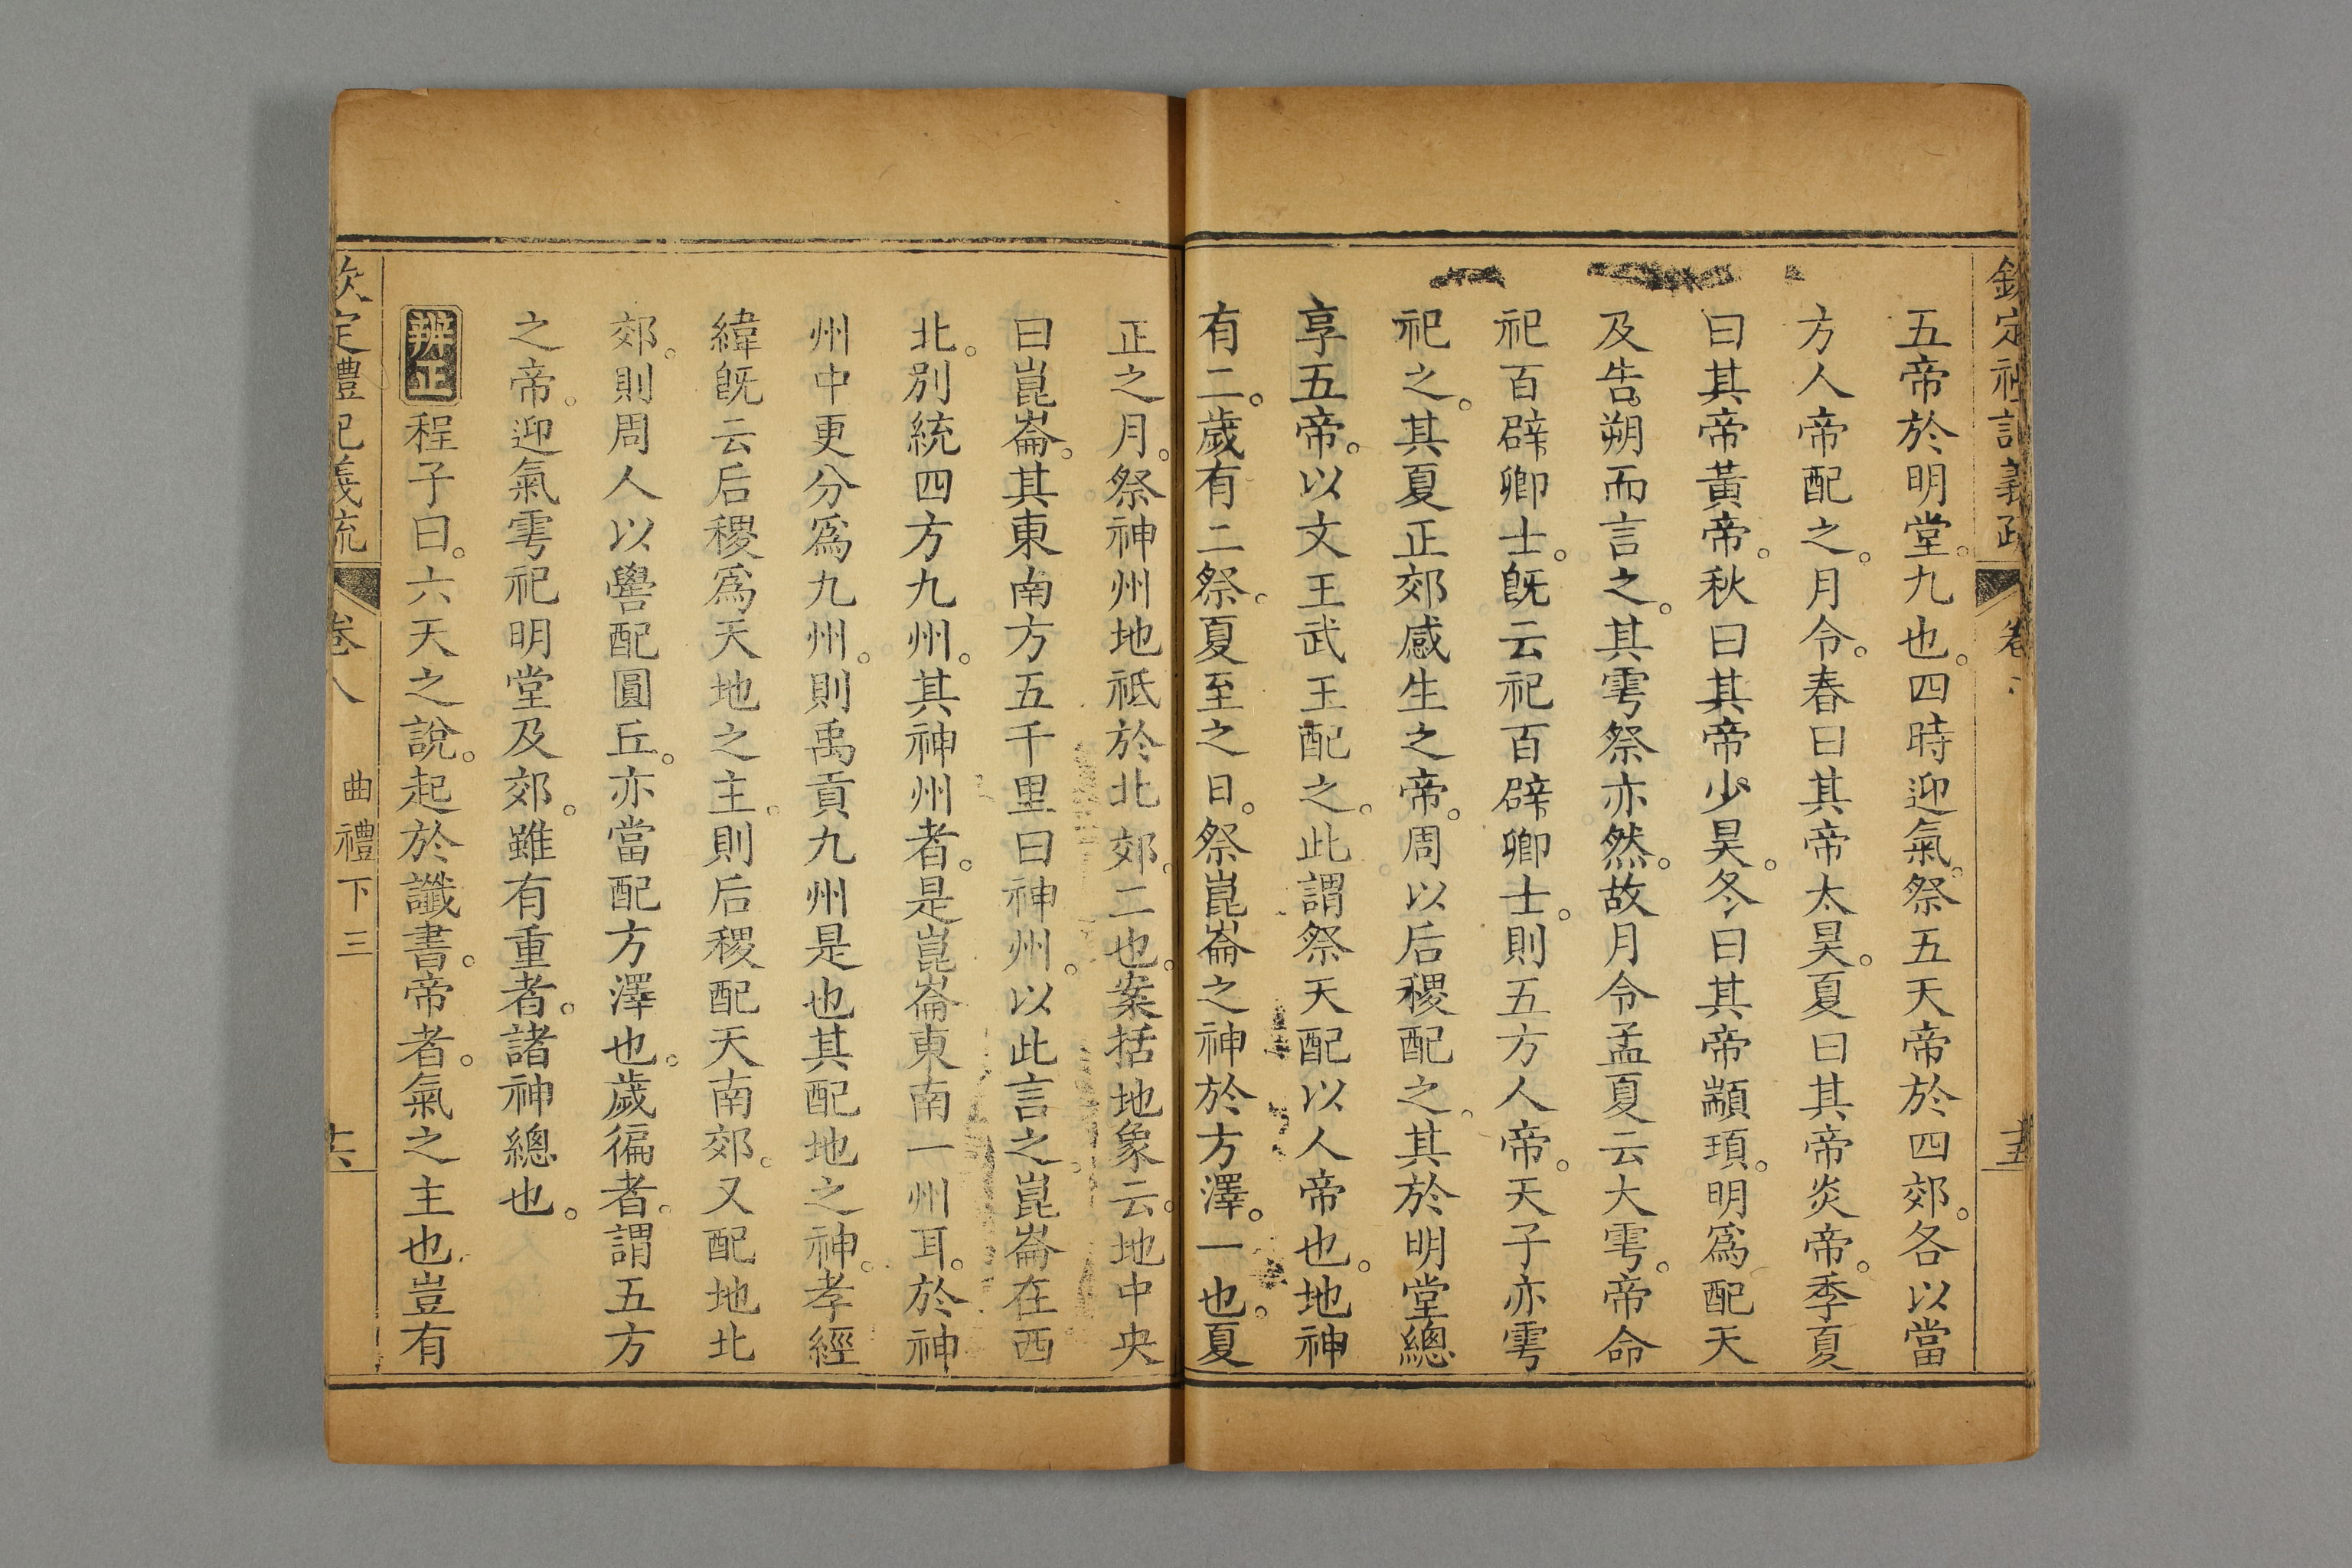 欽定禮記義疏 卷八 十五
五帝於明堂。九也。四時迎氣。祭五天帝於四郊。各以當
方人帝配之。月令。春曰其帝太昊。夏曰其帝炎帝。季夏
曰其帝黃帝。秋曰其帝少昊。冬曰其帝顓頊。明爲配天
及告朔而言之。其雩祭亦然。故月令孟夏云大雩。帝命
祀百辟卿士。旣云祀百辟卿士。則五方人帝。天子亦雩
祀之。其夏正郊感生之帝。周以后稷配之。其於明堂總
享五帝。以文王武王配之。此謂祭天配以人帝也。地神
有二。歲有二祭。夏至之日。祭崑崙之神於方澤。一也。夏
正之月。祭神州地祇於北郊。二也。案括地象云。地中央
曰崑崙。其東南方五千里曰神州。以此言之。崑崙在西
北。別統四方九州。其神州者。是崑崙東南一州耳。於神
州中更分爲九州。則禹貢九州是也其配地之神。孝經
緯旣云后稷爲天地之主。則后稷配天南郊。又配地北
郊。則周人以嚳配圓丘。亦當配方澤也。歲徧者。謂五方
之帝。迎氣雩祀明堂及郊。雖有重者。諸神總也。
辨正 程子曰。六天之說。起於讖書。帝者。氣之主也豈有
欽定禮記義疏 卷八 曲禮下三 十六